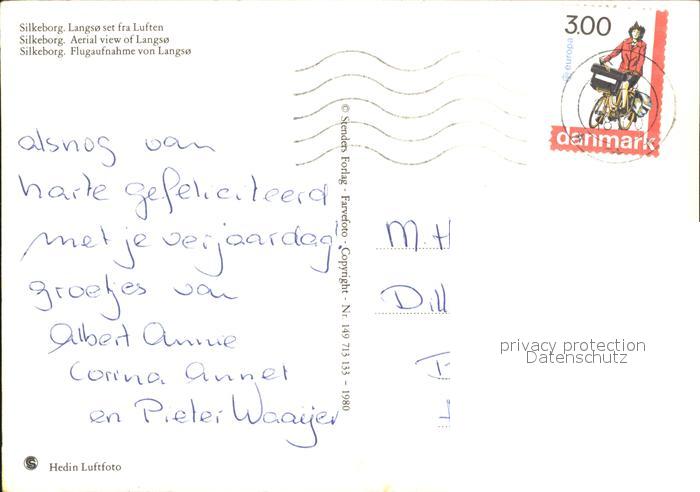 Silkeborg. Langsø set fra Luften
Silkeborg. Aerial view of Langsø
Silkeborg. Flugaufnahme von Langsø
3.00
europa
danmark
© Stenders Forlag - Farvefoto - Copyright - Nr. 149 713 133 - 1980
alsnog van
harte gefeliciteerd
met je verjaardag!
groetjes van
Albert Annie
Corina Annet
en Pieter Waaijer
M. H
Dill
privacy protection
Datenschutz
Hedin Luftfoto